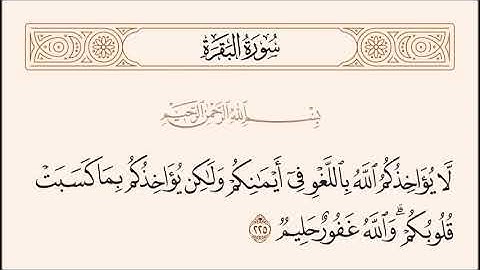 سُورَةُ البَقَرَةِ
بِسْمِ اللَّهِ الرَّحْمَٰنِ الرَّحِيمِ
لَّا يُؤَاخِذُكُمُ ٱللَّهُ بِٱللَّغْوِ فِىٓ أَيْمَٰنِكُمْ وَلَٰكِن يُؤَاخِذُكُم بِمَا كَسَبَتْ
قُلُوبُكُمْ ۗ وَٱللَّهُ غَفُورٌ حَلِيمٌ ٢٢٥